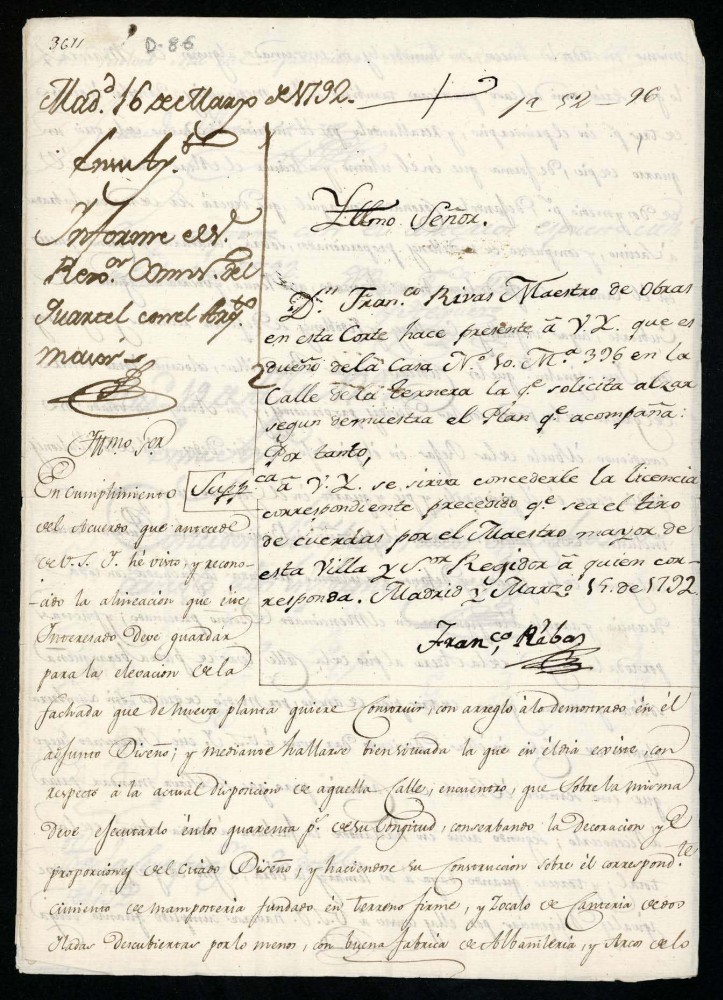 3611
D-86
Mad.d 16 de Marzo de 1792.
1ª 52 - 96
En su Ay.to
Informe el S.r
Rexo.or Comis.o del
Quartel con el Arq.to
mayor
Yllmo Señor.
D.n Fran.co Rivas Maestro de Obras
en esta Corte hace presente â V.Y. que es
dueño de la Casa Nº 10. M.ª 396 en la
Calle de la ternera la q.e solicita alzar
segun demuestra el Plan q.e acompaña:
Por tanto,
Supp.ca â V.Y. se sirva concederle la licencia
correspondiente precedido q.e sea el tiro
de cuerdas por el Maestro mayor de
esta Villa y S.or Regidor â quien cor-
responda. Madrid y Marzo 15. de 1792
Fran.co Ribas
Yllmo S.or
En cumplimiento
del Acuerdo que antecede
de V.S.Y. hé visto, y recono-
cido la alineacion que este
Interesado deve guardar
para la elevacion de la
fachada que de nueva planta quiere Construir, con arreglo â lo demostrado en él
adjunto Diseño; y mediante hallarse bien situada la que en él dia existe, con
respecto â la actual disposicion de aquella Calle, encuentro, que sobre la misma
deve ejecutarlo ên los quarenta p.s de su Longitud, conserbando la Decoracion y
proporciones del citado Diseño, y haciendose su Construccion sobre él correspond.te
cimiento de mamposteria fundado en terreno firme, y Zocalo de Canteria de dos
iladas descubiertas por lo menos, con buena fabrica de Albañileria, y Arcos de lo